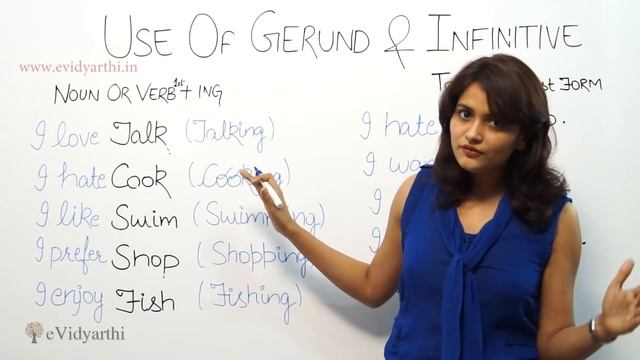 USE OF GERUND & INFINITIVE
www.evidyarthi.in
NOUN OR VERB 1st + ING
FORM
I love Talk (Talking)
I hate
I hate Cook (Cooking)
I
I like Swim (Swimming)
I
I prefer Shop (Shopping)
I enjoy Fish (Fishing)
eVidyarthi